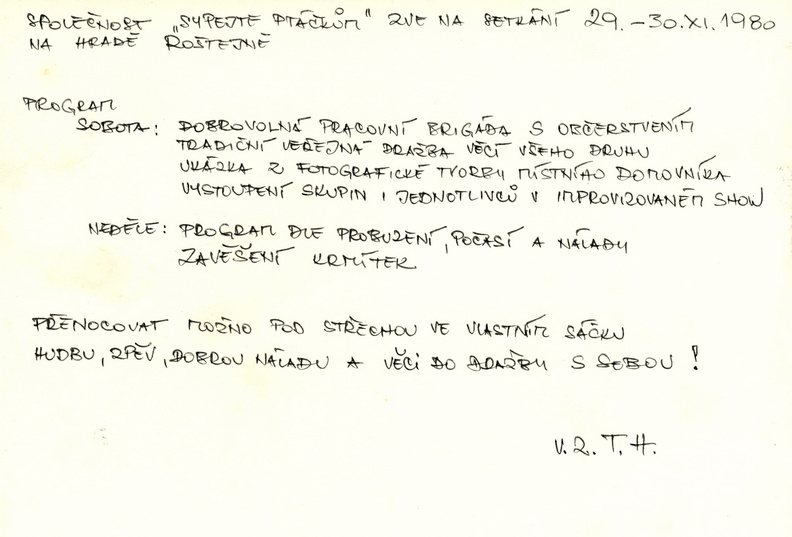 SPOLEČNOST „SYPEJTE PTÁČKŮM" ZVE NA SETKÁNÍ 29.-30.XI.1980
NA HRADĚ ROŠTEJNĚ
PROGRAM
SOBOTA: DOBROVOLNÁ PRACOVNÍ BRIGÁDA S OBČERSTVENÍM
TRADIČNÍ VEŘEJNÁ DRAŽBA VĚCÍ VŠEHO DRUHU
UKÁZKA Z FOTOGRAFICKÉ TVORBY MÍSTNÍHO DOMOVNÍKA
VYSTOUPENÍ SKUPIN I JEDNOTLIVCŮ V IMPROVIZOVANÉM SHOW
NEDĚLE: PROGRAM DLE PROBUZENÍ, POČASÍ A NÁLADY
ZAVĚŠENÍ KRMÍTEK.
PŘENOCOVAT MOŽNO POD STŘECHOU VE VLASTNÍM SÁČKU
HUDBU, ZPĚV, DOBROU NÁLADU A VĚCI DO DRAŽBY S SEBOU!
V.Z. T.H.